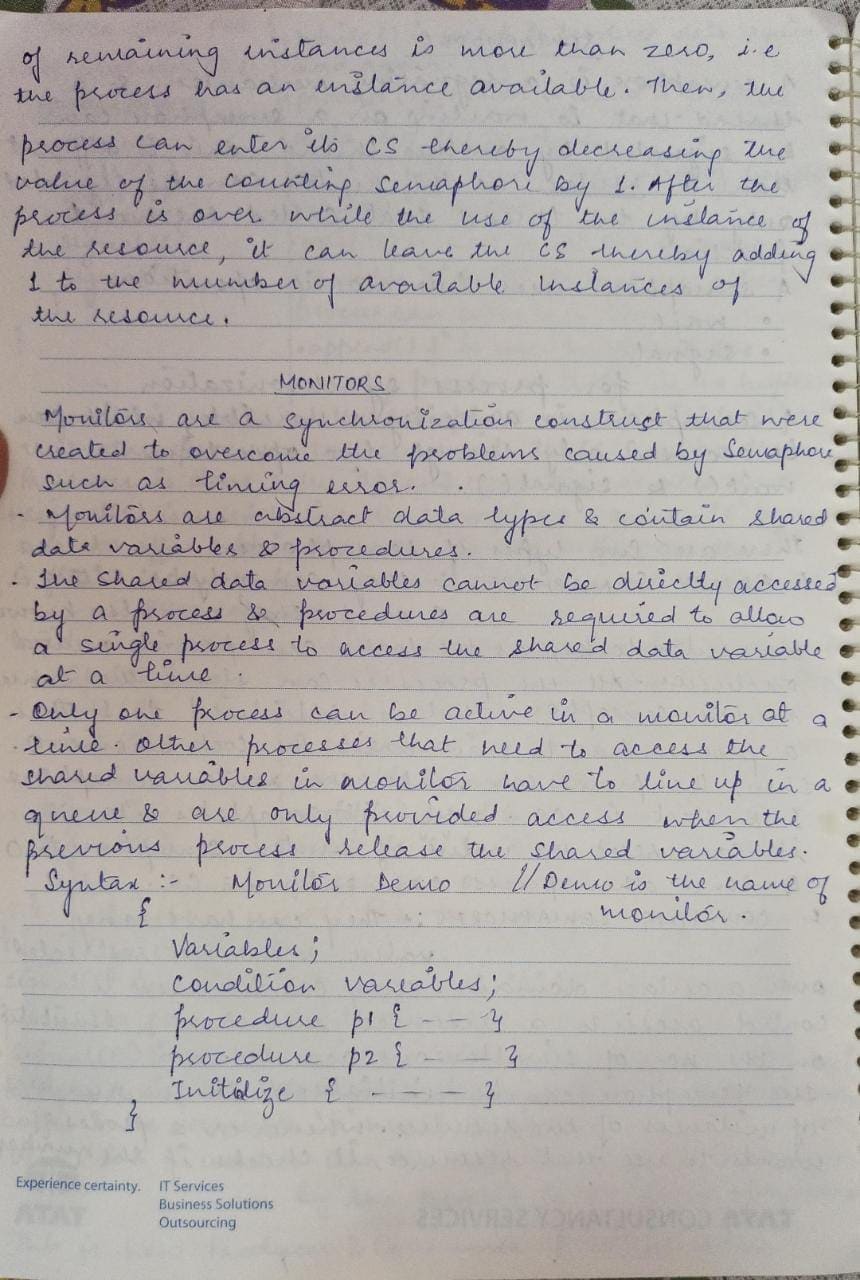 of remaining instances is more than zero, i.e
the process has an instance available. Then, the
process can enter its CS thereby decreasing the
value of the counting semaphore by 1. After the
process is over while the use of the instance of
the resource, it can leave the CS thereby adding
1 to the number of available instances of
the resource.
MONITORS
Monitors are a synchronization construct that were
created to overcome the problems caused by Semaphore
such as timing error.
- Monitors are abstract data types & contain shared
data variables & procedures.
. The shared data variables cannot be directly accessed
by a process & procedures are required to allow
a single process to access the shared data variable
at a time.
- Only one process can be active in a monitor at a
time. Other processes that need to access the
shared variables in monitor have to line up in a
queue & are only provided access when the
previous process release the shared variables.
Syntax :- Monitor Demo //Demo is the name of
{ monitor.
Variables;
condition variables;
procedure p1 { - - }
procedure p2 { - - }
Initilize { - - - }
}
Experience certainty. IT Services
Business Solutions
Outsourcing